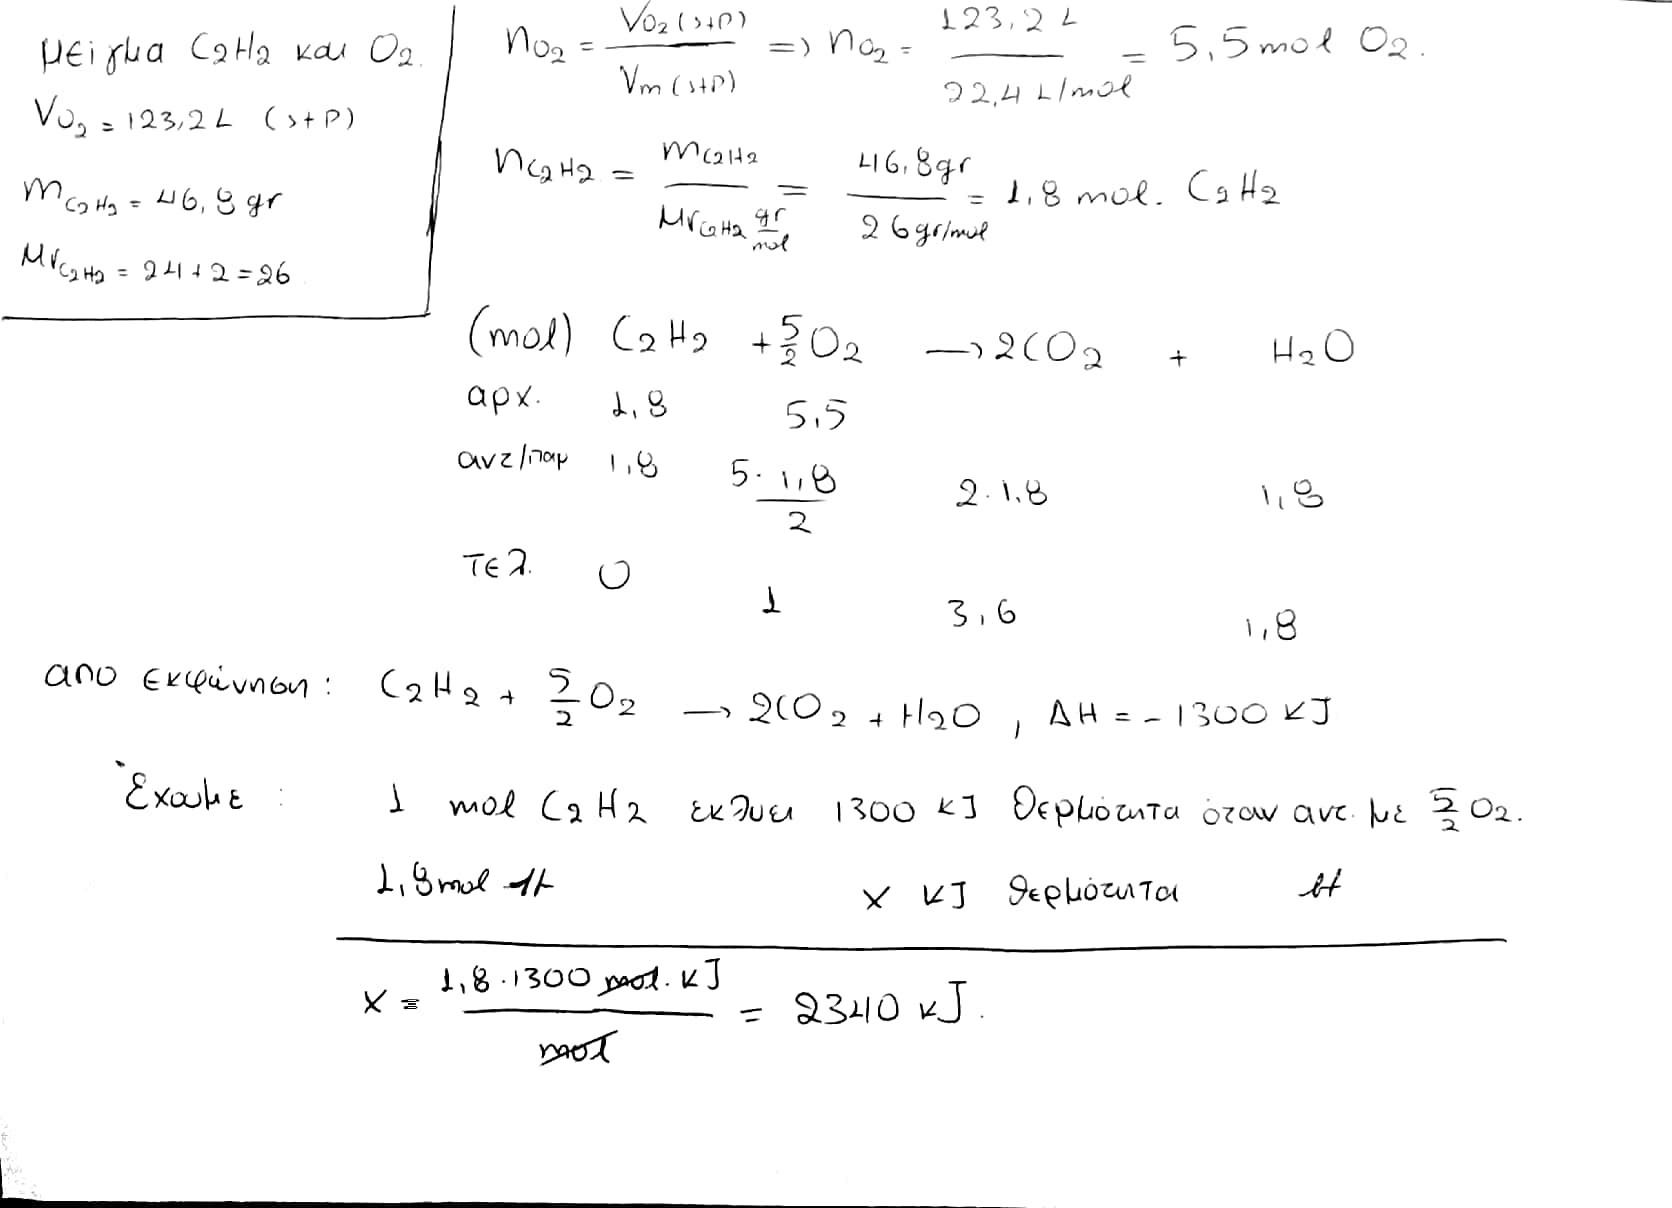 μείγμα C2H2 και O2.
VO2 = 123,2 L (stP)
mC2H2 = 46,8 gr
MrC2H2 = 24+2=26
nO2 = VO2 (stP) / Vm (stP) => nO2 = 123,2 L / 22,4 L/mol = 5,5 mol O2.
nC2H2 = mC2H2 / MrC2H2 gr/mol = 46,8gr / 26gr/mol = 1,8 mol. C2H2
(mol) C2H2 + 5/2 O2 → 2CO2 + H2O
αρχ. 1,8 5,5
αντ/παρ 1,8 5·1,8/2 2·1,8 1,8
τελ. 0 1 3,6 1,8
απο εκφώνηση: C2H2 + 5/2 O2 → 2CO2 + H2O , ΔH = -1300 KJ
Έχουμε : 1 mol C2H2 εκλυει 1300 KJ θερμότητα όταν αντ. με 5/2 O2.
1,8 mol -//- x KJ θερμότητα -//-
x = 1,8·1300 mol·KJ / mol = 2340 KJ.